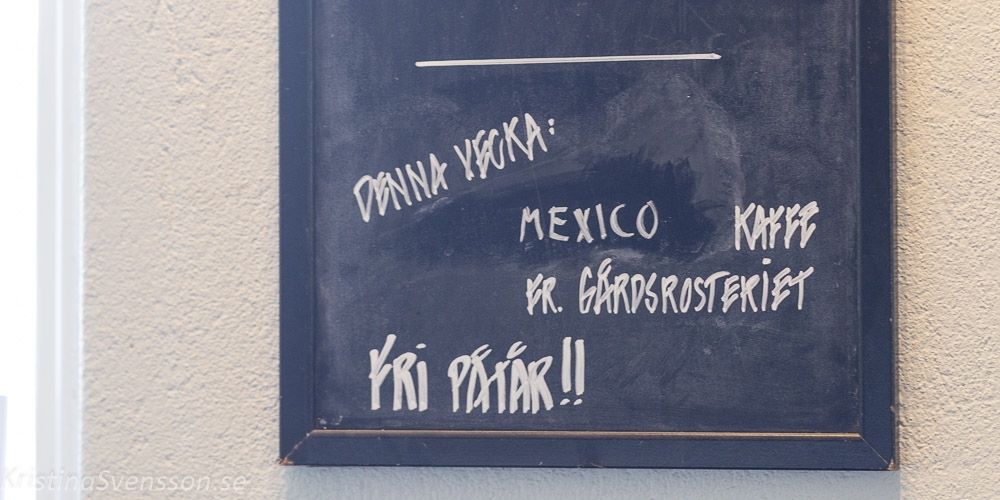 DENNA VECKA:
MEXICO KAFFE
FR. GÅRDSROSTERIET
FRI PÅTÅR!!
KristinaSvensson.se